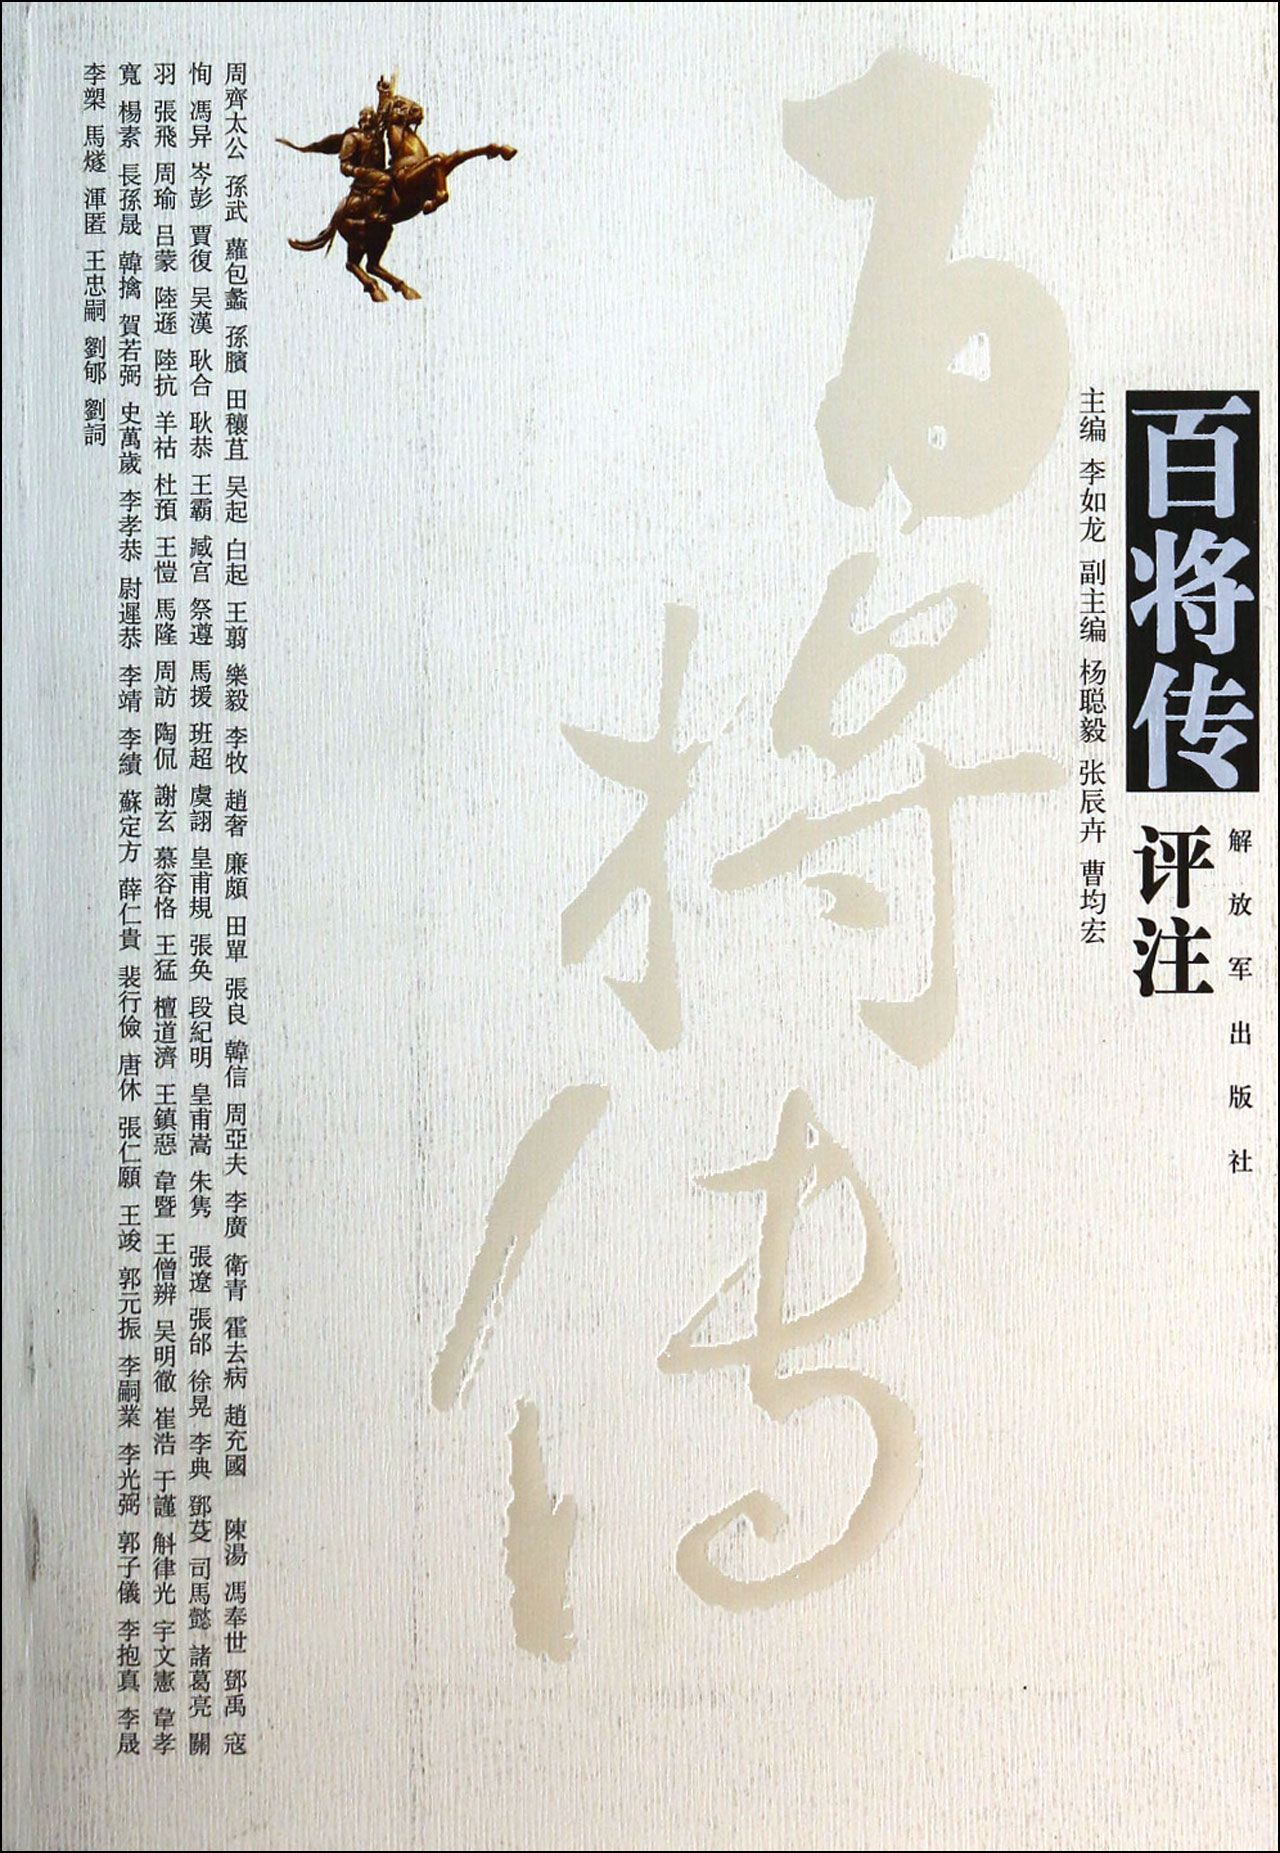 解放军出版社
百将传
评注
主编 李如龙 副主编 杨聪毅 张辰卉 曹均宏
百将传
周齊太公 孫武 蘿包蠡 孫臏 田穰苴 吴起 白起 王翦 樂毅 李牧 趙奢 廉頗 田單 張良 韓信 周亞夫 李廣 衛青 霍去病 趙充國 陳湯 馮奉世 鄧禹 寇
恂 馮异 岑彭 賈復 吴漢 耿合 耿恭 王霸 臧宫 祭遵 馬援 班超 虞詡 皇甫規 張奂 段紀明 皇甫嵩 朱隽 張遼 張郃 徐晃 李典 鄧芟 司馬懿 諸葛亮 關
羽 張飛 周瑜 吕蒙 陸遜 陸抗 羊祜 杜預 王愷 馬隆 周訪 陶侃 謝玄 慕容恪 王猛 檀道濟 王鎮惡 韋暨 王僧辨 吴明徹 崔浩 于謹 斛律光 宇文憲 韋孝
寬 楊素 長孫晟 韓擒 賀若弼 史萬歲 李孝恭 尉遲恭 李靖 李績 蘇定方 薛仁貴 裴行儉 唐休 張仁願 王竣 郭元振 李嗣業 李光弼 郭子儀 李抱真 李晟
李槊 馬燧 渾匿 王忠嗣 劉郇 劉詞